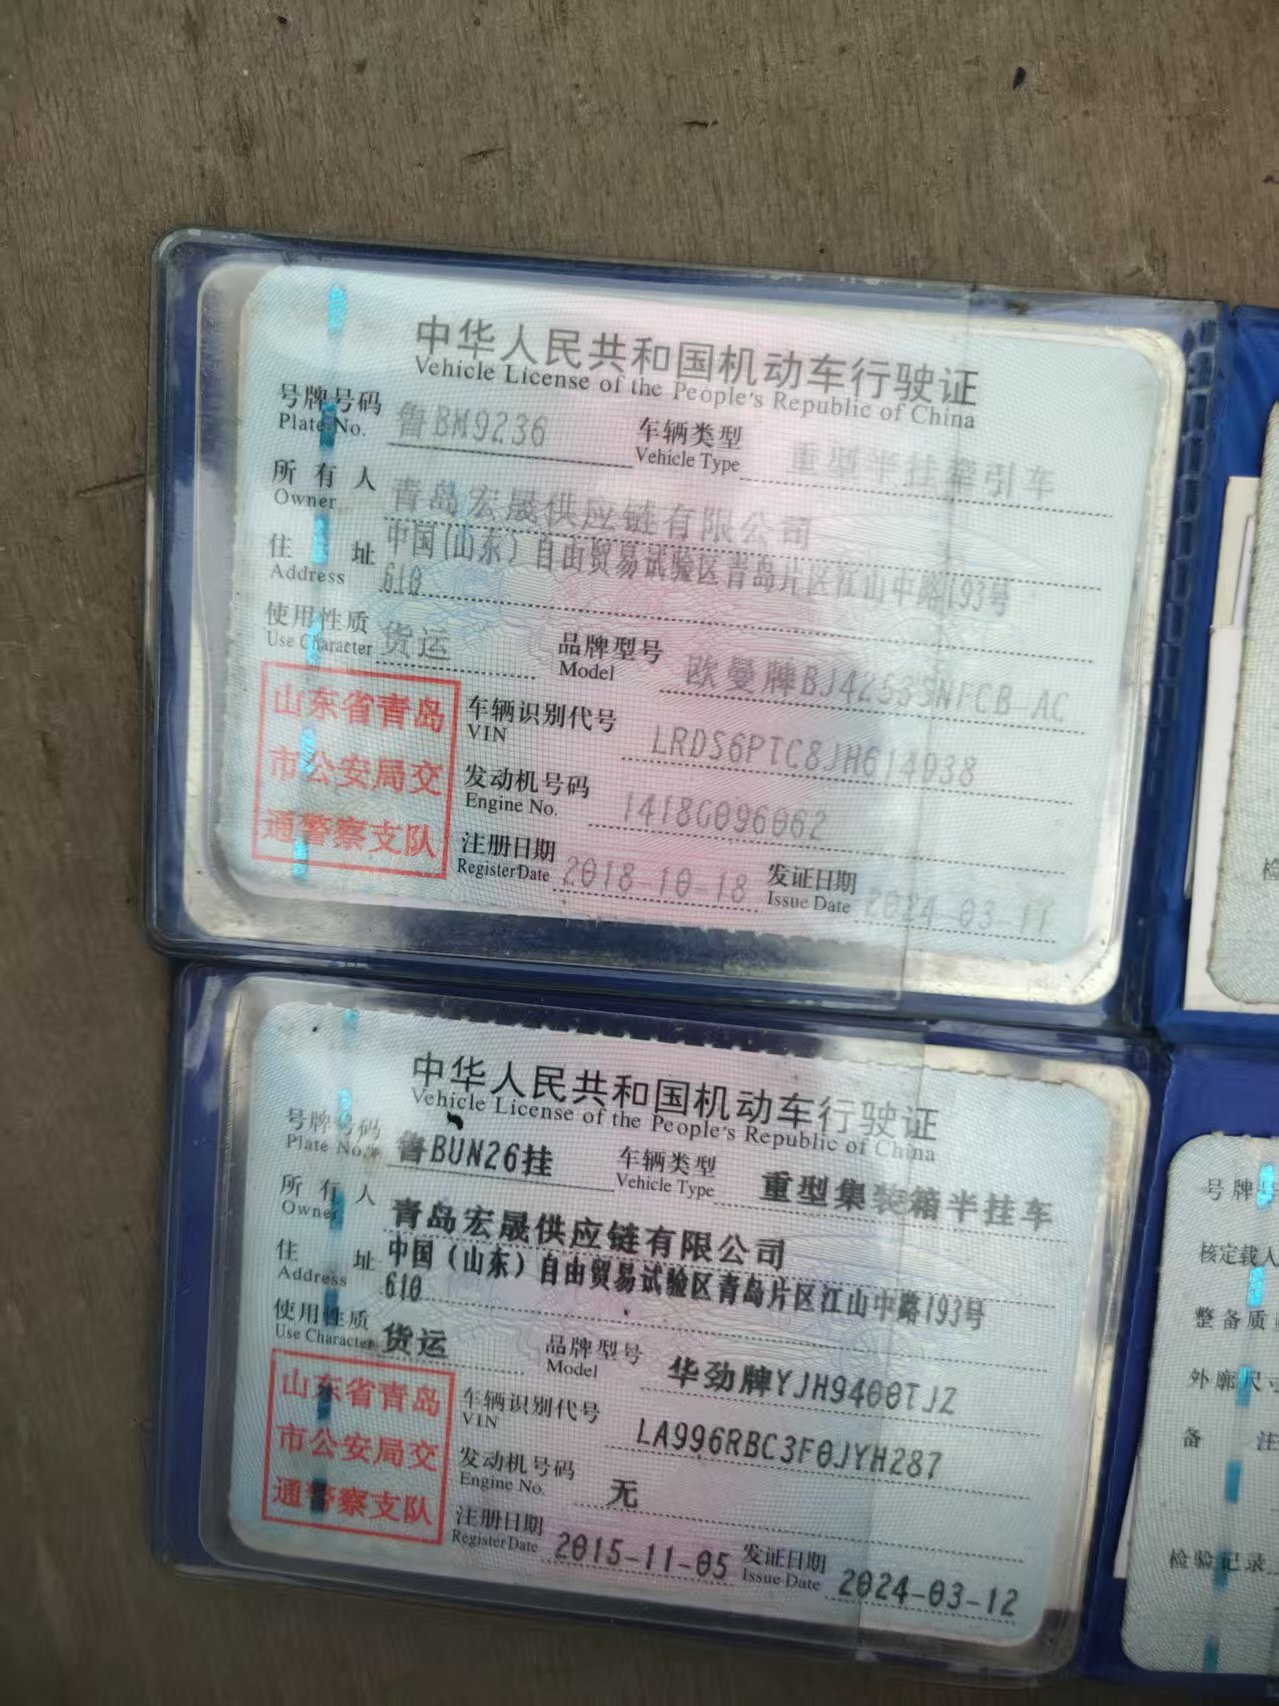 中华人民共和国机动车行驶证
Vehicle License of the People's Republic of China
号牌号码 鲁BM9236 车辆类型 重型半挂牵引车
Plate No. Vehicle Type
所有人 青岛宏晟供应链有限公司
Owner
住址 中国(山东)自由贸易试验区青岛片区江山中路193号
Address 610
使用性质 货运 品牌型号 欧曼牌BJ4253SNFCB-AC
Use Character Model
山东省青岛
市公安局交
通警察支队
车辆识别代号 LRDS6PTC8JH614938
VIN
发动机号码 1418G096062
Engine No.
注册日期 2018-10-18 发证日期 2024-03-11
Register Date Issue Date
中华人民共和国机动车行驶证
Vehicle License of the People's Republic of China
号牌号码 鲁BUN26挂 车辆类型 重型集装箱半挂车
Plate No. Vehicle Type
所有人 青岛宏晟供应链有限公司
Owner
住址 中国(山东)自由贸易试验区青岛片区江山中路193号
Address 610
使用性质 货运 品牌型号 华劲牌YJH9400TJZ
Use Character Model
山东省青岛
市公安局交
通警察支队
车辆识别代号 LA996RBC3F0JYH287
VIN
发动机号码 无
Engine No.
注册日期 2015-11-05 发证日期 2024-03-12
Register Date Issue Date
检
号牌号
核定载人
整备质
外廓尺寸
备注
检验记录